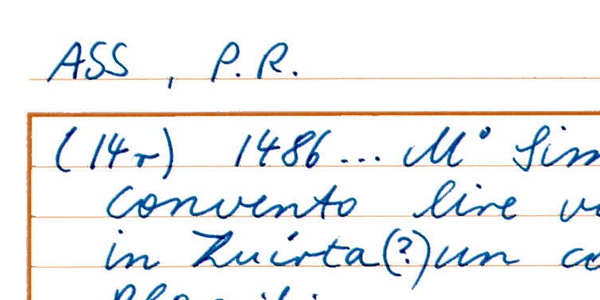 ASS , P.R.
(14r) 1486... Mº Sim
convento live v
in Zuirta(?) un co